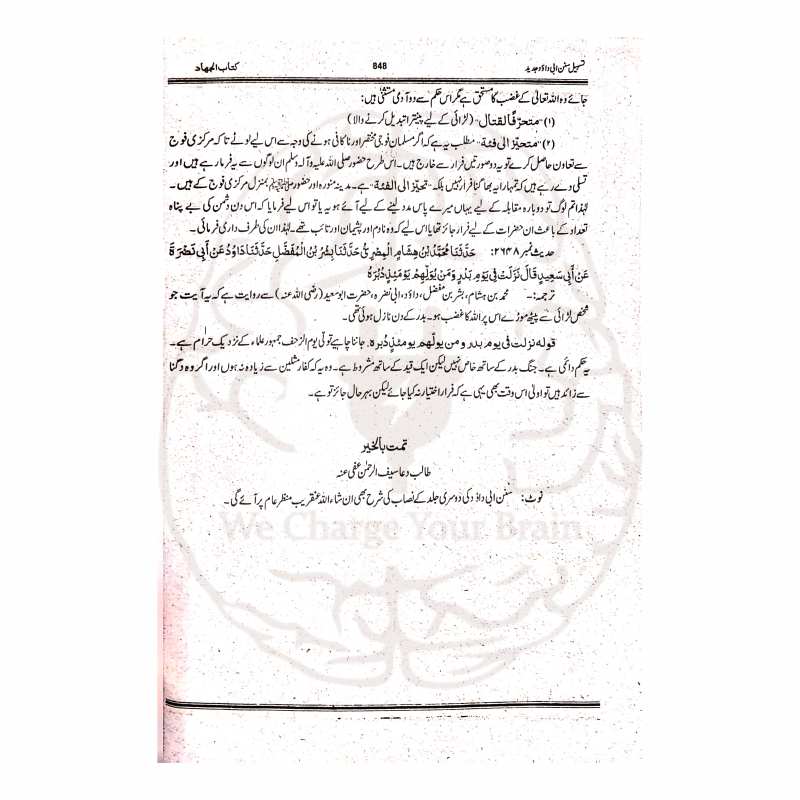 تسہیل سنن ابی داؤد جدید 848 کتاب الجہاد
جائے وہ اللہ تعالیٰ کے غضب کا مستحق ہے مگر اس حکم سے دو آدمی مستثنیٰ ہیں:
(۱) "متحرفاً لقتال" (لڑائی کے لیے پینترا تبدیل کرنے والا)
(۲) "متحیز الی فئة" مطلب یہ ہے کہ اگر مسلمان فوجی مختصر اور ناکافی ہونے کی وجہ سے اس لیے لوٹے تاکہ مرکزی فوج
سے تعاون حاصل کرے تو یہ دو صورتیں فرار سے خارج ہیں۔ اس طرح حضور صلی اللہ علیہ وآلہ وسلم ان لوگوں سے یہ فرما رہے ہیں اور
تسلی دے رہے ہیں کہ تمہارا یہ بھاگنا فرار نہیں بلکہ "تحیز الی الفئة" ہے۔ مدینہ منورہ اور حضور ﷺ بمنزل مرکزی فوج کے ہیں۔
لہٰذا تم لوگ تو دوبارہ مقابلہ کے لیے یہاں میرے پاس مدد لینے کے لیے آئے ہو یہ یا تو اس لیے فرمایا کہ اس دن دشمن کی بے پناہ
تعداد کے باعث ان حضرات کے لیے فرار جائز تھا یا اس لیے کہ وہ نادم اور پشیمان اور تائب تھے۔ لہٰذا ان کی طرف داری فرمائی۔
حدیث نمبر ۲۶۴۸: حَدَّثَنَا مُحَمَّدُ بْنُ هِشَامٍ الْمِصْرِيُّ حَدَّثَنَا بِشْرُ بْنُ الْمُفَضَّلِ حَدَّثَنَا دَاوُدُ عَنْ أَبِي نَضْرَةَ
عَنْ أَبِي سَعِيدٍ قَالَ نَزَلَتْ فِي يَوْمِ بَدْرٍ وَمَنْ يُوَلِّهِمْ يَوْمَئِذٍ دُبُرَهُ
ترجمہ:۔ محمد بن ہشام، بشر بن مفضل، داؤد، ابی نضرہ، حضرت ابو سعید (رضی اللہ عنہ) سے روایت ہے کہ یہ آیت جو
شخص لڑائی سے پیٹھ موڑے اس پر اللہ کا غضب ہو۔ بدر کے دن نازل ہوئی تھی۔
قوله نزلت في يوم بدر و من يولهم يومئذ دبره. جاننا چاہیے تولی یوم الزحف جمہور علماء کے نزدیک حرام ہے۔
یہ حکم دائمی ہے۔ جنگ بدر کے ساتھ خاص نہیں لیکن ایک قید کے ساتھ مشروط ہے۔ وہ یہ کہ کفار مثلین سے زیادہ نہ ہوں اور اگر وہ دگنا
سے زائد ہیں تو اولیٰ اس وقت بھی یہی ہے کہ فرار اختیار نہ کیا جائے لیکن بہرحال جائز تو ہے۔
تمت بالخیر
طالب دعا سیف الرحمٰن عفی عنہ
نوٹ: سنن ابی داؤد کی دوسری جلد کے نصاب کی شرح بھی ان شاء اللہ عنقریب منظر عام پر آئے گی۔
We Charge Your Brain